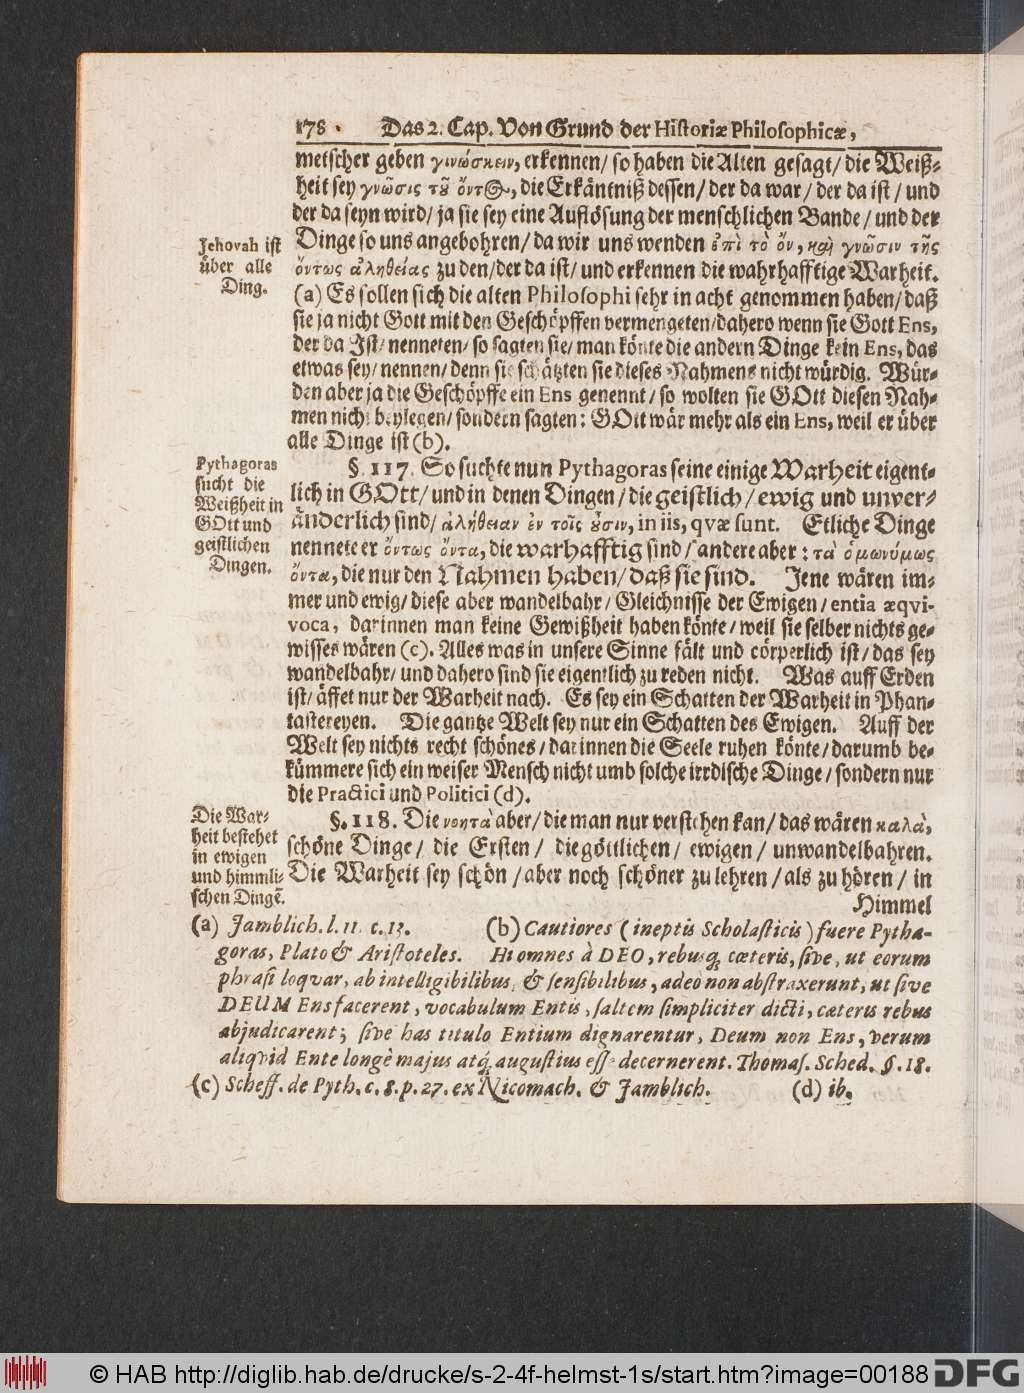 178. Das 2. Cap. Von Grund der Historiæ Philosophicæ,
metscher geben γινώσκειν, erkennen/ so haben die Alten gesagt/ die Weiß-
heit sey γνῶσις τȣ͂ ὄντ@, die Erkäntniß dessen/ der da war/ der da ist/ und
der da seyn wird/ ja sie sey eine Auflösung der menschlichen Bande/ und der
Dinge so uns angebohren/ da wir uns wenden ἐπὶ τὸ ὄν, καὶ γνῶσιν τῆς
ὄντως ἀληθείας zu den/ der da ist/ und erkennen die wahrhafftige Warheit.
(a) Es sollen sich die alten Philosophi sehr in acht genommen haben/ daß
sie ja nicht Gott mit den Geschöpffen vermengeten/ dahero wenn sie Gott Ens,
der da Ist/ nenneten/ so sagten sie/ man könte die andern Dinge kein Ens, das
etwas sey/ nennen/ denn sie schätzten sie dieses Nahmens nicht würdig. Wür-
den aber ja die Geschöpffe ein Ens genennt/ so wolten sie GOtt diesen Nah-
men nicht beylegen/ sondern sagten: GOtt wär mehr als ein Ens, weil er über
alle Dinge ist (b).
Jehovah ist
über alle
Ding.
§. 117. So suchte nun Pythagoras seine einige Warheit eigent-
lich in GOtt/ und in denen Dingen/ die geistlich/ ewig und unver-
änderlich sind/ ἀλήθειαν ἐν τοῖς ȣ͂σιν, in iis, qvæ sunt. Etliche Dinge
nennete er ὄντως ὄντα, die warhafftig sind/ andere aber: τὰ ὁμωνύμως
ὄντα, die nur den Nahmen haben/ daß sie sind. Jene wären im-
mer und ewig/ diese aber wandelbahr/ Gleichnisse der Ewigen/ entia æqvi-
voca, darinnen man keine Gewißheit haben könte/ weil sie selber nichts ge-
wisses wären (c). Alles was in unsere Sinne fält und cörperlich ist/ das sey
wandelbahr/ und dahero sind sie eigentlich zu reden nicht. Was auff Erden
ist/ äffet nur der Warheit nach. Es sey ein Schatten der Warheit in Phan-
tastereyen. Die gantze Welt sey nur ein Schatten des Ewigen. Auff der
Welt sey nichts recht schönes/ darinnen die Seele ruhen könte/ darumb be-
kümmere sich ein weiser Mensch nicht umb solche irrdische Dinge/ sondern nur
die Practici und Politici (d).
Pythagoras
sucht die
Weißheit in
GOtt und
geistlichen
Dingen.
§. 118. Die νοητὰ aber/ die man nur verstehen kan/ das wären καλὰ,
schöne Dinge/ die Ersten/ die göttlichen/ ewigen/ unwandelbahren.
Die Warheit sey schön/ aber noch schöner zu lehren/ als zu hören/ in
Himmel
Die War-
heit bestehet
in ewigen
und himmli-
schen Dingē.
(a) Jamblich. l. 11. c. 13. (b) Cautiores (ineptis Scholasticis) fuere Pytha-
goras, Plato & Aristoteles. Hi omnes à DEO, rebusq; cæteris, sive, ut eorum
phrasi loqvar, ab intelligibilibus, & sensibilibus, adeo non abstraxerunt, ut sive
DEUM Ens facerent, vocabulum Entis, saltem simpliciter dicti, cæteris rebus
abjudicarent; sive has titulo Entium dignarentur, Deum non Ens, verum
aliqvid Ente longè majus atq; augustius esse decernerent. Thomas. Sched. §. 18.
(c) Scheff. de Pyth. c. 8. p. 27. ex Nicomach. & Jamblich. (d) ib.
© HAB http://diglib.hab.de/drucke/s-2-4f-helmst-1s/start.htm?image=00188 DFG